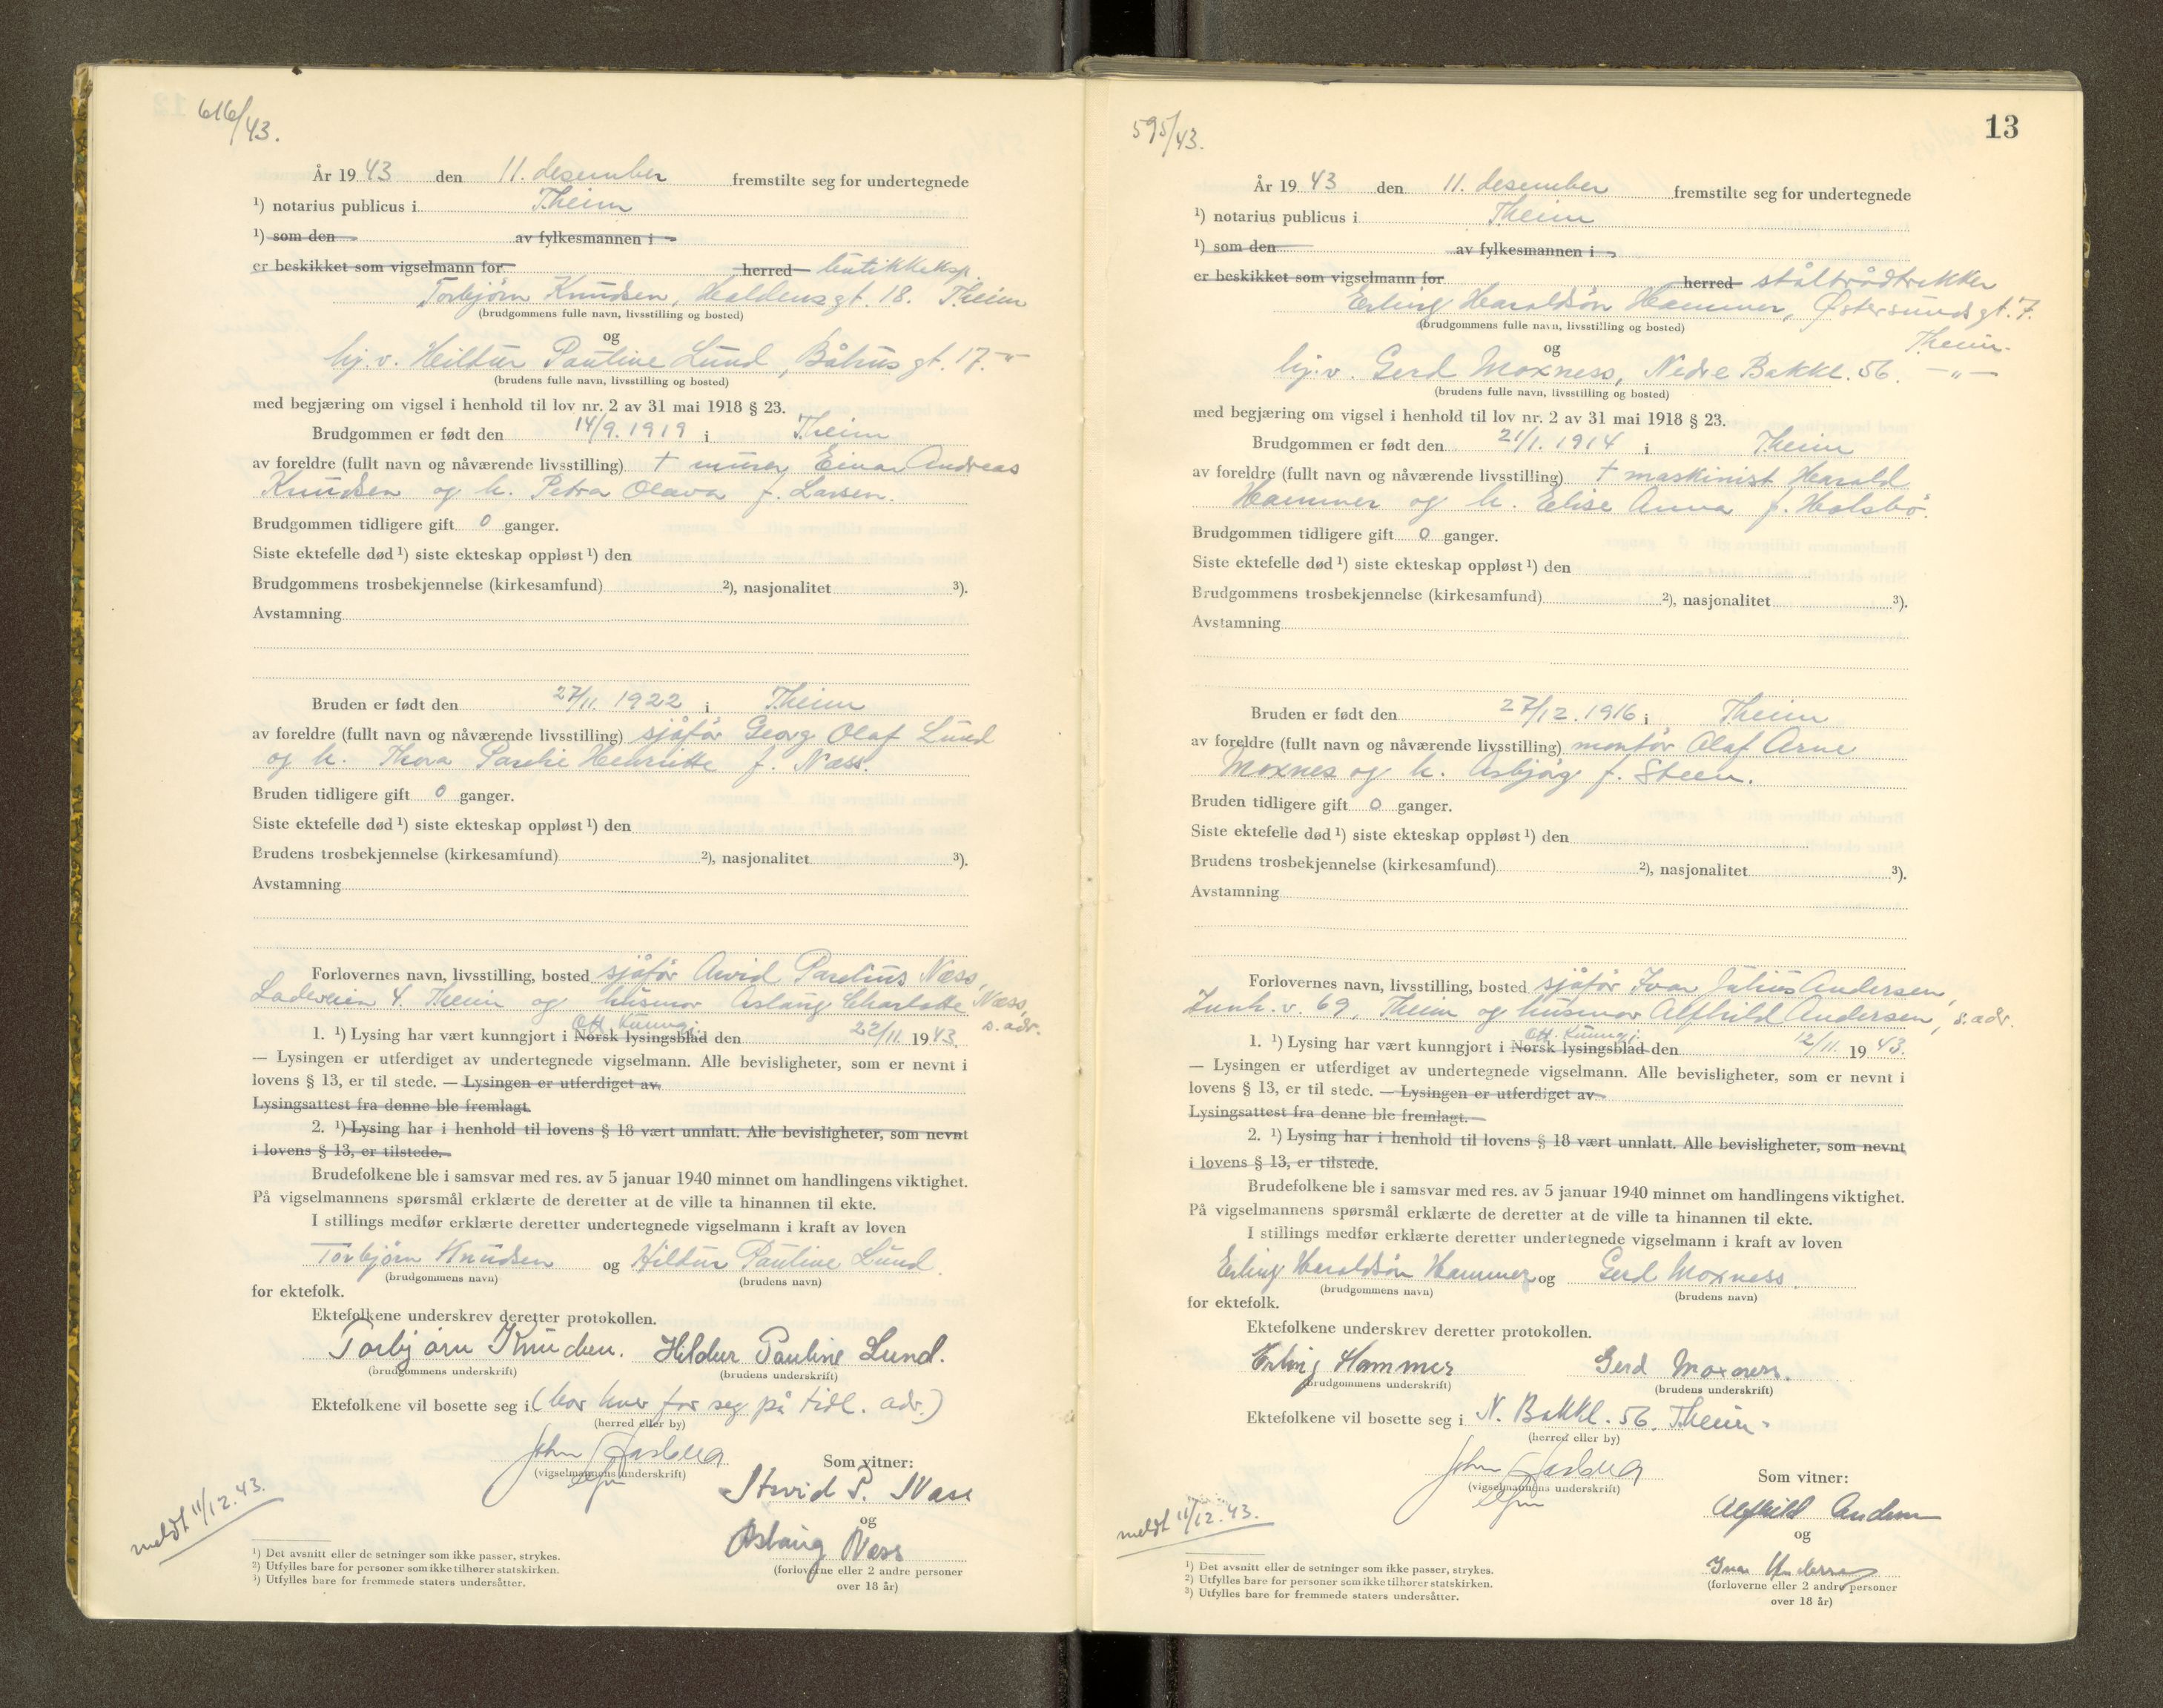 616/43.
År 1943 den 11. desember fremstilte seg for undertegnede
¹) notarius publicus i Theim
¹) som den av fylkesmannen i
er beskikket som vigselmann for herred butikkeksp.
Torbjørn Knudsen, Haldensgt. 18. Theim
(brudgommens fulle navn, livsstilling og bosted)
og
hj. v. Hildur Pauline Lund, Båhusgt. 17. -"-
(brudens fulle navn, livsstilling og bosted)
med begjæring om vigsel i henhold til lov nr. 2 av 31 mai 1918 § 23.
Brudgommen er født den 14/9. 1919 i Theim
av foreldre (fullt navn og nåværende livsstilling) + murer Einar Andreas
Knudsen og h. Petra Olava f. Larsen.
Brudgommen tidligere gift 0 ganger.
Siste ektefelle død ¹) siste ekteskap oppløst ¹) den
Brudgommens trosbekjennelse (kirkesamfund) ²), nasjonalitet ³).
Avstamning
Bruden er født den 27/11. 1922 i Theim
av foreldre (fullt navn og nåværende livsstilling) sjåfør Georg Olaf Lund
og h. Thora Henriette f. Næss.
Bruden tidligere gift 0 ganger.
Siste ektefelle død ¹) siste ekteskap oppløst ¹) den
Brudens trosbekjennelse (kirkesamfund) ²), nasjonalitet ³).
Avstamning
Forlovernes navn, livsstilling, bosted sjåfør Arvid Parelius Næss,
Ladeveien 4. Theim og husmor Aslaug Charlotte Næss,
s. adr.
Off. Kunngj.
1. ¹) Lysing har vært kunngjort i Norsk lysingsblad den 22/11. 1943.
— Lysingen er utferdiget av undertegnede vigselmann. Alle bevisligheter, som er nevnt i
lovens § 13, er til stede. — Lysingen er utferdiget av
Lysingsattest fra denne ble fremlagt.
2. ¹) Lysing har i henhold til lovens § 18 vært unnlatt. Alle bevisligheter, som nevnt
i lovens § 13, er tilstede.
Brudefolkene ble i samsvar med res. av 5 januar 1940 minnet om handlingens viktighet.
På vigselmannens spørsmål erklærte de deretter at de ville ta hinannen til ekte.
I stillings medfør erklærte deretter undertegnede vigselmann i kraft av loven
Torbjørn Knudsen og Hildur Pauline Lund.
(brudgommens navn) (brudens navn)
for ektefolk.
Ektefolkene underskrev deretter protokollen.
Torbjørn Knudsen. Hildur Pauline Lund.
(brudgommens underskrift) (brudens underskrift)
Ektefolkene vil bosette seg i (bor hver for seg på tidl. adr.)
(herred eller by)
John
(vigselmannens underskrift)
Som vitner:
Arvid P. Næss
og
Aslaug Næss
(forloverne eller 2 andre personer
over 18 år)
meldt 11/12.43.
¹) Det avsnitt eller de setninger som ikke passer, strykes.
²) Utfylles bare for personer som ikke tilhører statskirken.
³) Utfylles bare for fremmede staters undersåtter.
13
595/43.
År 1943 den 11. desember fremstilte seg for undertegnede
¹) notarius publicus i Theim
¹) som den av fylkesmannen i
er beskikket som vigselmann for herred ståltrådtrekker
Erling Haraldsøn Hammer, Østersundsgt. 7.
(brudgommens fulle navn, livsstilling og bosted)
Theim.
og
hj. v. Gerd Moxness, Nedre Bakkl. 56. -"-
(brudens fulle navn, livsstilling og bosted)
med begjæring om vigsel i henhold til lov nr. 2 av 31 mai 1918 § 23.
Brudgommen er født den 21/1. 1914 i Theim
av foreldre (fullt navn og nåværende livsstilling) + maskinist Harald
Hammer og h. Elise Anna f. Holsbø.
Brudgommen tidligere gift 0 ganger.
Siste ektefelle død ¹) siste ekteskap oppløst ¹) den
Brudgommens trosbekjennelse (kirkesamfund) ²), nasjonalitet ³).
Avstamning
Bruden er født den 27/12. 1916 i Theim
av foreldre (fullt navn og nåværende livsstilling) montør Olaf Arne
Moxnes og h. Asbjørg f. Steen.
Bruden tidligere gift 0 ganger.
Siste ektefelle død ¹) siste ekteskap oppløst ¹) den
Brudens trosbekjennelse (kirkesamfund) ²), nasjonalitet ³).
Avstamning
Forlovernes navn, livsstilling, bosted sjåfør Ivar Julius Andersen,
v. 69, Theim og husmor Alfhild Andersen, s. adr.
Off. Kunngj.
1. ¹) Lysing har vært kunngjort i Norsk lysingsblad den 12/11. 1943.
— Lysingen er utferdiget av undertegnede vigselmann. Alle bevisligheter, som er nevnt i
lovens § 13, er til stede. — Lysingen er utferdiget av
Lysingsattest fra denne ble fremlagt.
2. ¹) Lysing har i henhold til lovens § 18 vært unnlatt. Alle bevisligheter, som nevnt
i lovens § 13, er tilstede.
Brudefolkene ble i samsvar med res. av 5 januar 1940 minnet om handlingens viktighet.
På vigselmannens spørsmål erklærte de deretter at de ville ta hinannen til ekte.
I stillings medfør erklærte deretter undertegnede vigselmann i kraft av loven
Erling Haraldsøn Hammer og Gerd Moxness.
(brudgommens navn) (brudens navn)
for ektefolk.
Ektefolkene underskrev deretter protokollen.
Erling Hammer Gerd Moxness.
(brudgommens underskrift) (brudens underskrift)
Ektefolkene vil bosette seg i N. Bakkl. 56. Theim.
(herred eller by)
John
(vigselmannens underskrift)
Som vitner:
Alfhild Andersen
og
Ivar Andersen
(forloverne eller 2 andre personer
over 18 år)
meldt 11/12.43.
¹) Det avsnitt eller de setninger som ikke passer, strykes.
²) Utfylles bare for personer som ikke tilhører statskirken.
³) Utfylles bare for fremmede staters undersåtter.